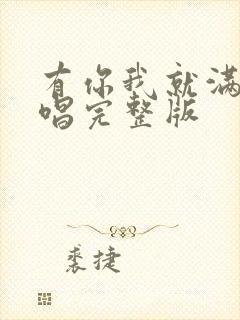 有你我就满
唱完整版
裘捷